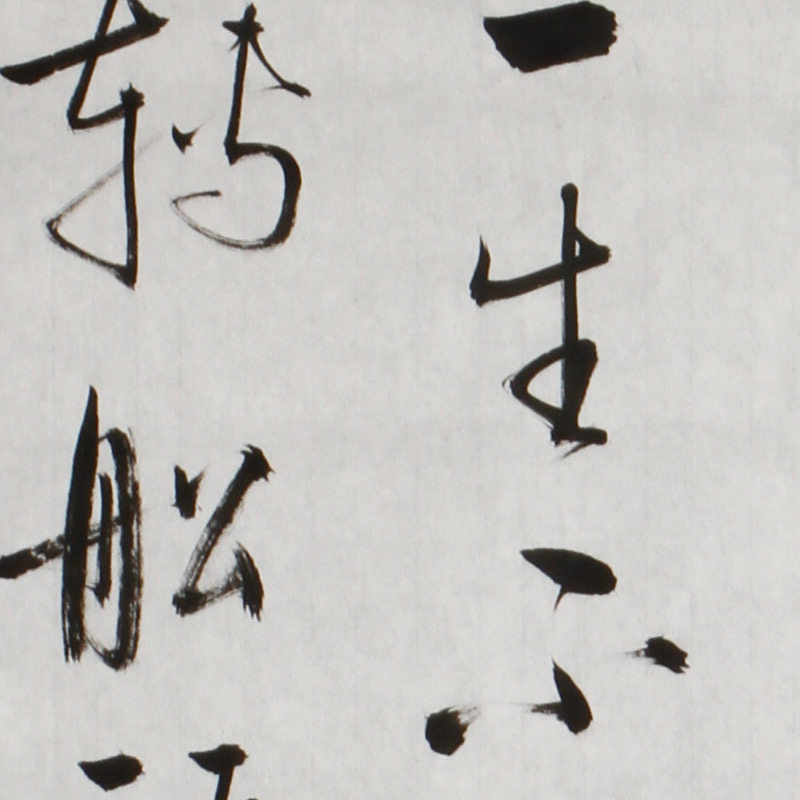 一生不
转船